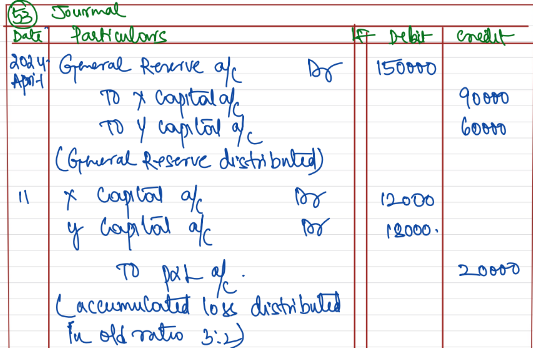 53 Journal
Date Particulars LF Debit Credit
2024 General Reserve a/c Dr 150000
April 1
To X Capital a/c 90000
To Y Capital a/c 60000
(General Reserve distributed)
11 X Capital a/c Dr 12000
Y Capital a/c Dr 18000.
To P&L a/c. 20000
(accumulated loss distributed
in old ratio 3:2)